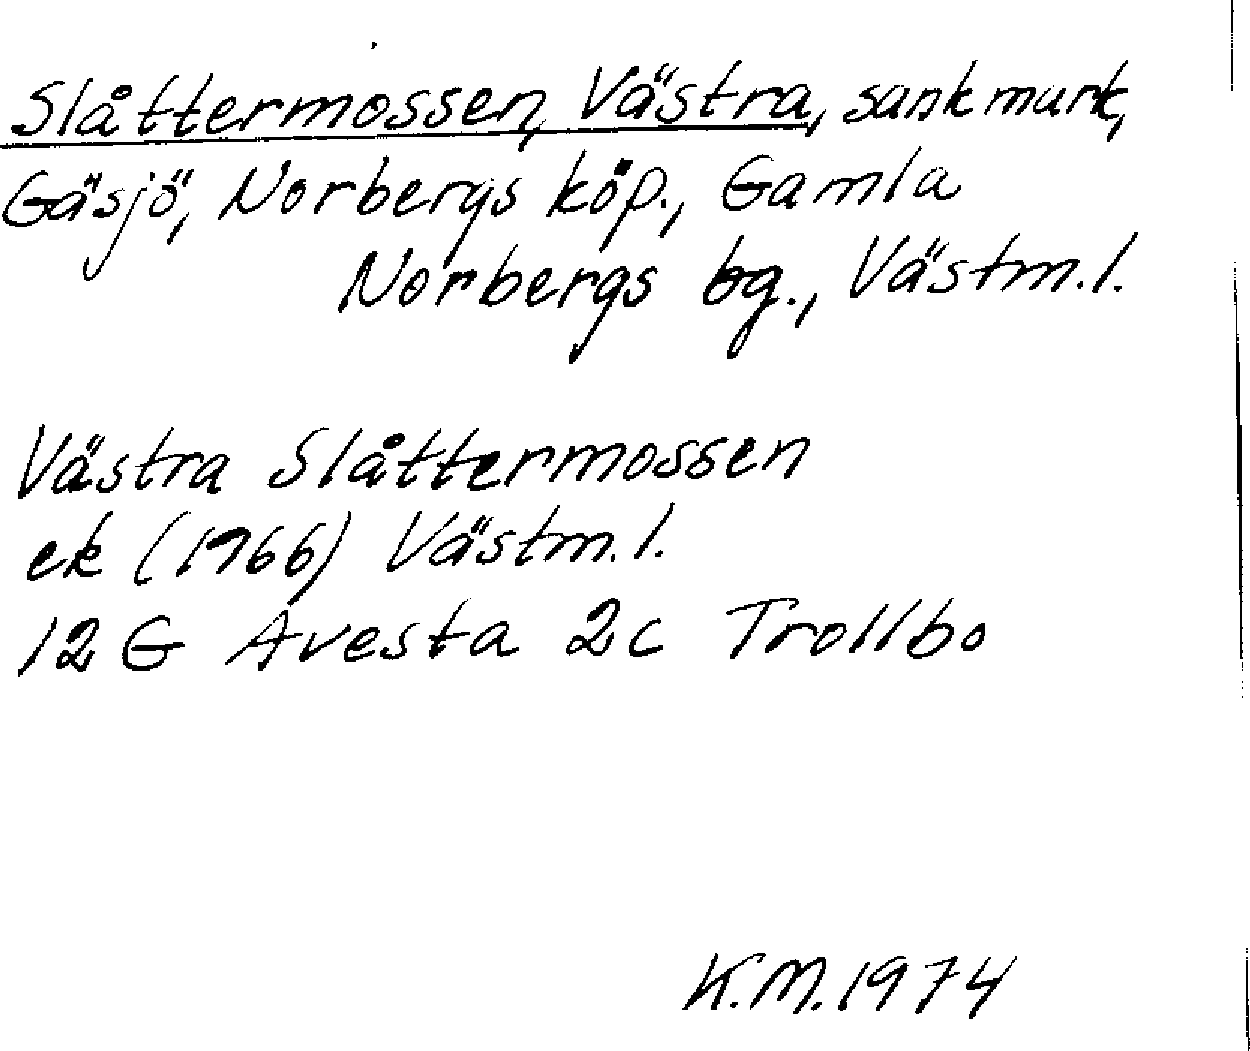 Slåttermossen, Västra, sankmark,
Gäsjö, Norbergs köp., Gamla
Norbergs bg., Västm.l.
Västra Slåttermossen
ek (1966) Västm.l.
12 G Avesta 2c Trollbo
K.M. 1974